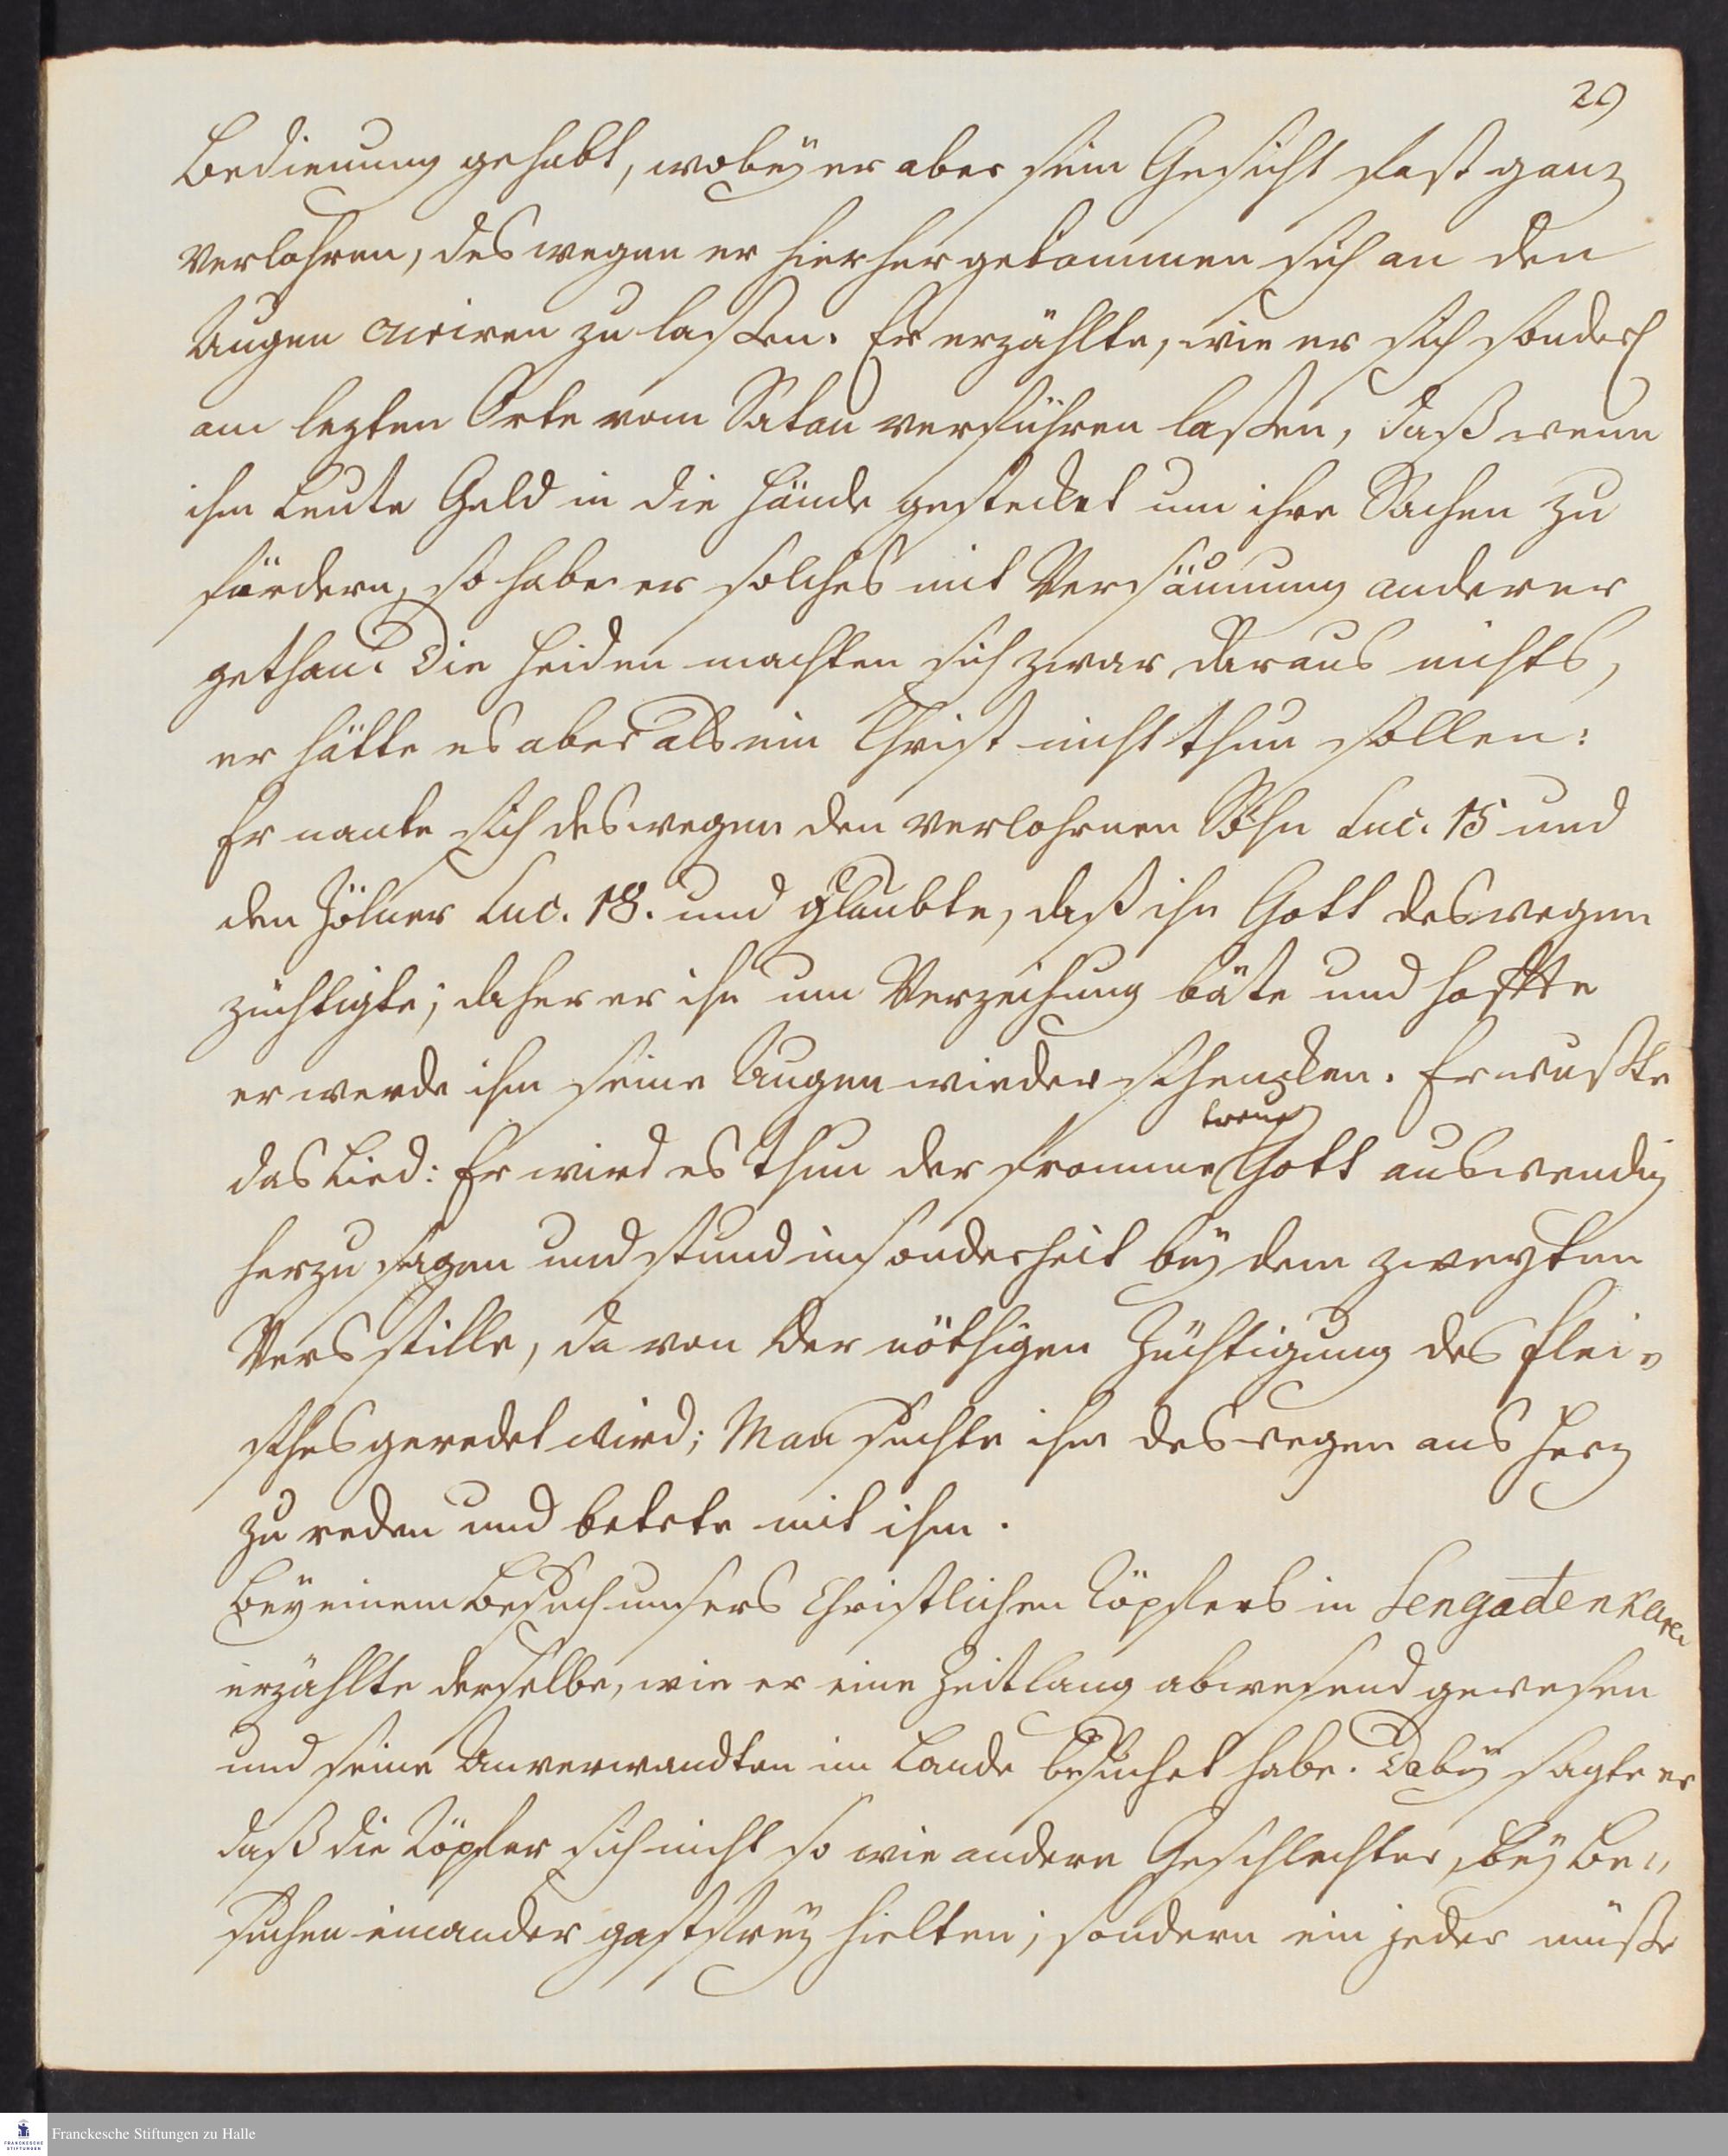 29
Bedienung gehabt, wobey er aber sein Gesicht fast ganz
verlohren, deswegen er hierher gekommen sich an den
Augen curiren zu laßen. Er erzählte, wie er sich sonderl
am lezten Orte vom Satan verführen laßen, daß wenn
ihm Leute Geld in die Hände gestecket um ihre Sachen zu
fördern, so habe er solches mit Versäumung anderer
gethan. Die Heiden machten sich zwar daraus nichts,
er hätte es aber als ein Christ nicht thun sollen:
Er nante sich deswegen den verlohrnen Sohn Luc. 15 und
den Zölner Luc. 18. und glaubte, daß ihn Gott deswegen
züchtigte; daher er ihn um Verzeihung bäte und hoffte
er werde ihm seine Augen wieder schencken. Er wußte
treue
das Lied: Er wird es thun der fromme Gott auswendig
herzusagen und stund insonderheit bey dem zweyten
Vers stille, da von der nöthigen Züchtigung des Flei-
sches geredet wird; Man suchte ihm deswegen ans Herz
zu reden und betete mit ihm.
Bey einem Besuch unsers Christlichen Töpfers in Sengadenkarei
erzählte derselbe, wie er eine Zeitlang abwesend gewesen
und seine Anverwandten im Lande besuchet habe. Dabey sagte er
daß die Töpfer sich nicht so wie andere Geschlechter, bey Be-
suchen einander gastfrey hielten; sondern ein jeder müße
Franckesche Stiftungen zu Halle